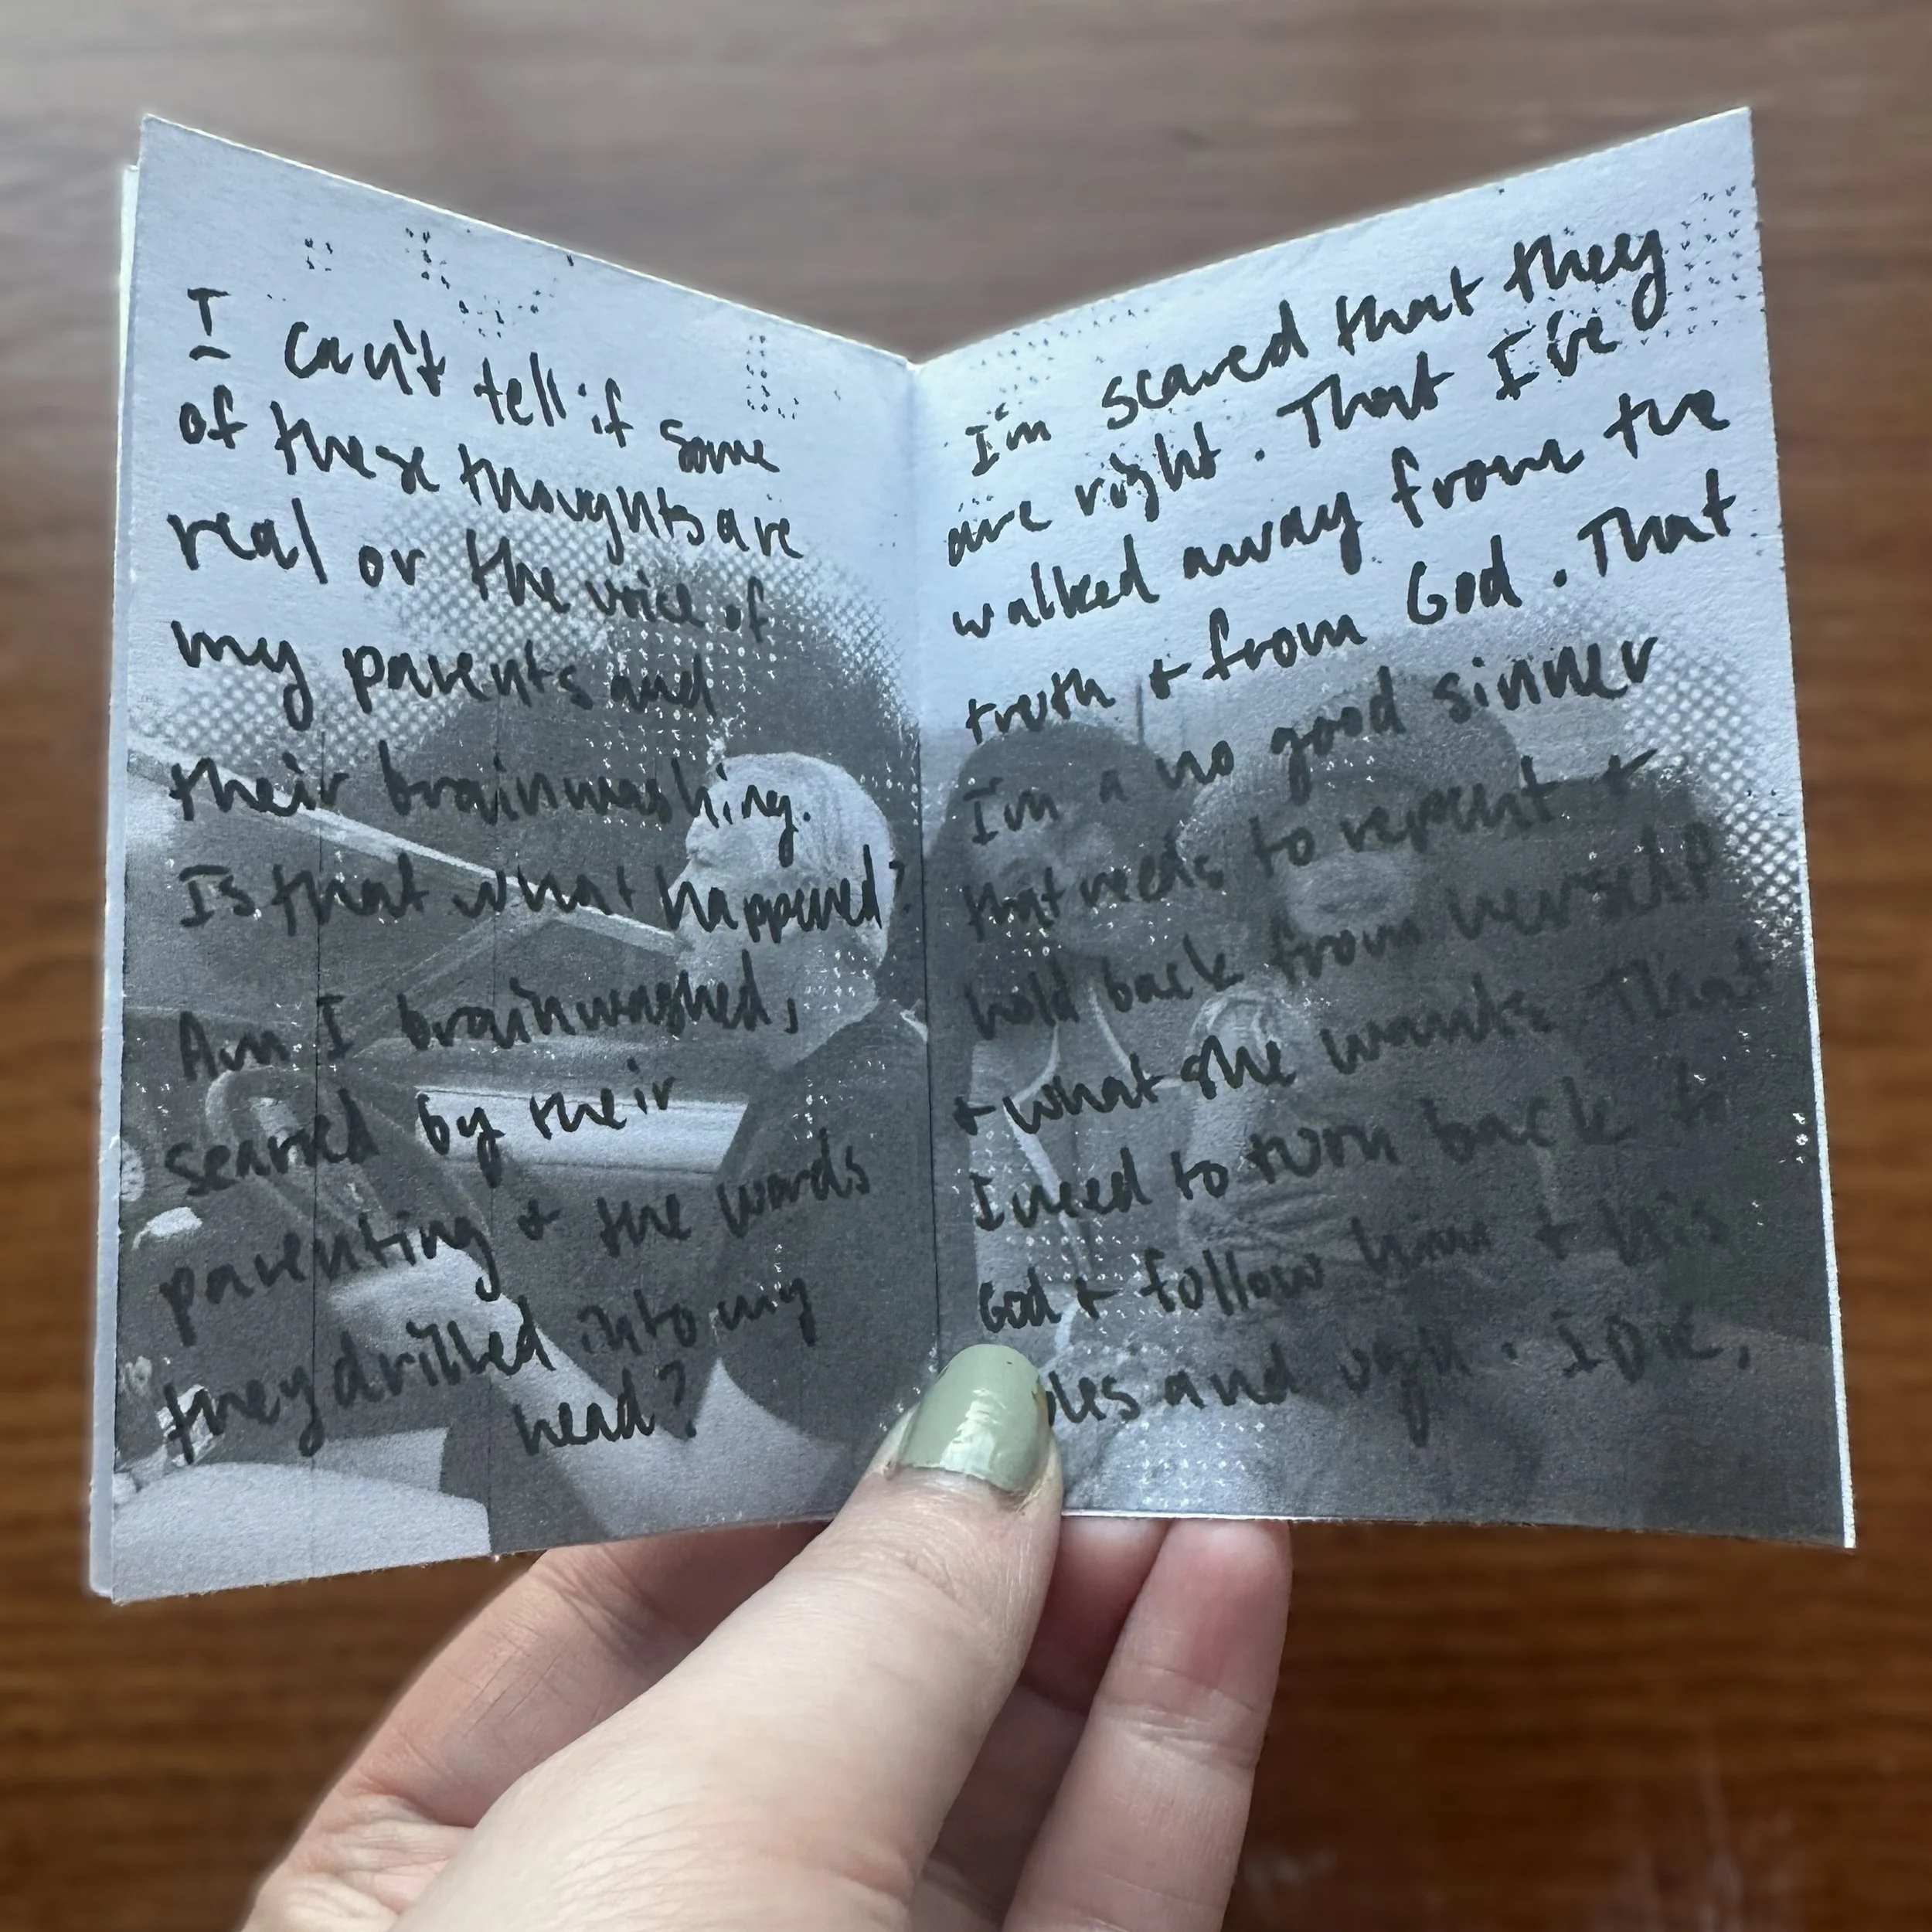 I can't tell if some
of these thoughts are
real or the voice of
my parents and
their brainwashing.
Is that what happened?
Am I brainwashed,
scarred by their
parenting + the words
they drilled into my
head?
I'm scared that they
are right. That I've
walked away from the
truth + from God. That
I'm a no good sinner
that needs to repent +
hold back from
+ what she wants. That
I need to turn back to
God + follow him + his
and ugh. I Die.